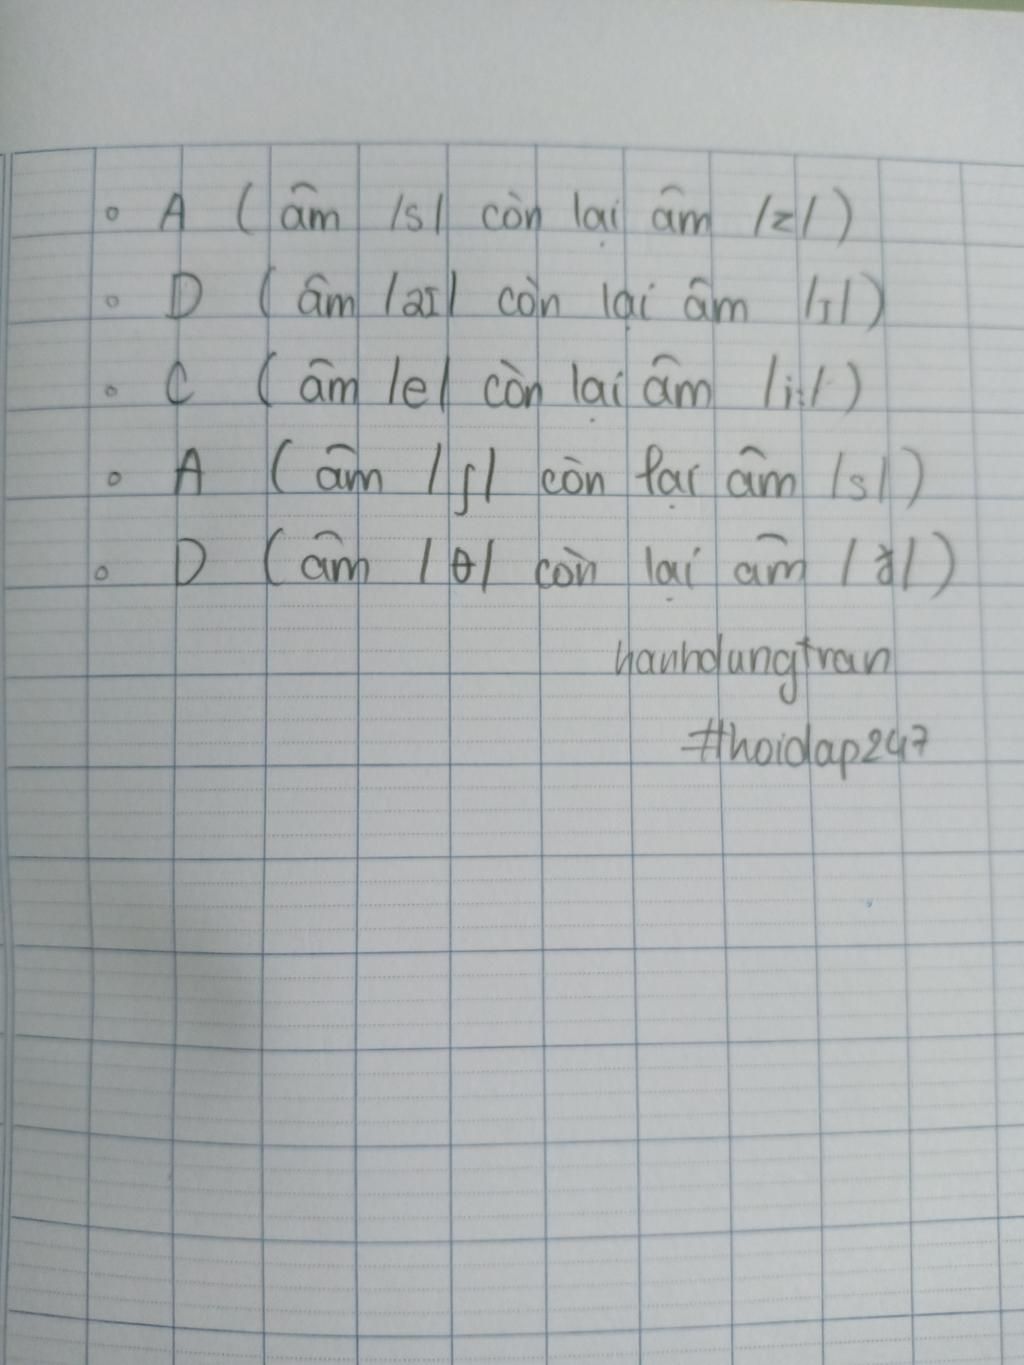 ∘ A ( âm /s/ còn lại âm /z/ )
∘ D ( âm /aɪ/ còn lại âm /ɪ/ )
∘ C ( âm /e/ còn lại âm /i:/ )
∘ A ( âm /ʃ/ còn lại âm /s/ )
∘ D ( âm /θ/ còn lại âm /ð/ )
hanhdungtran
#hoidap247